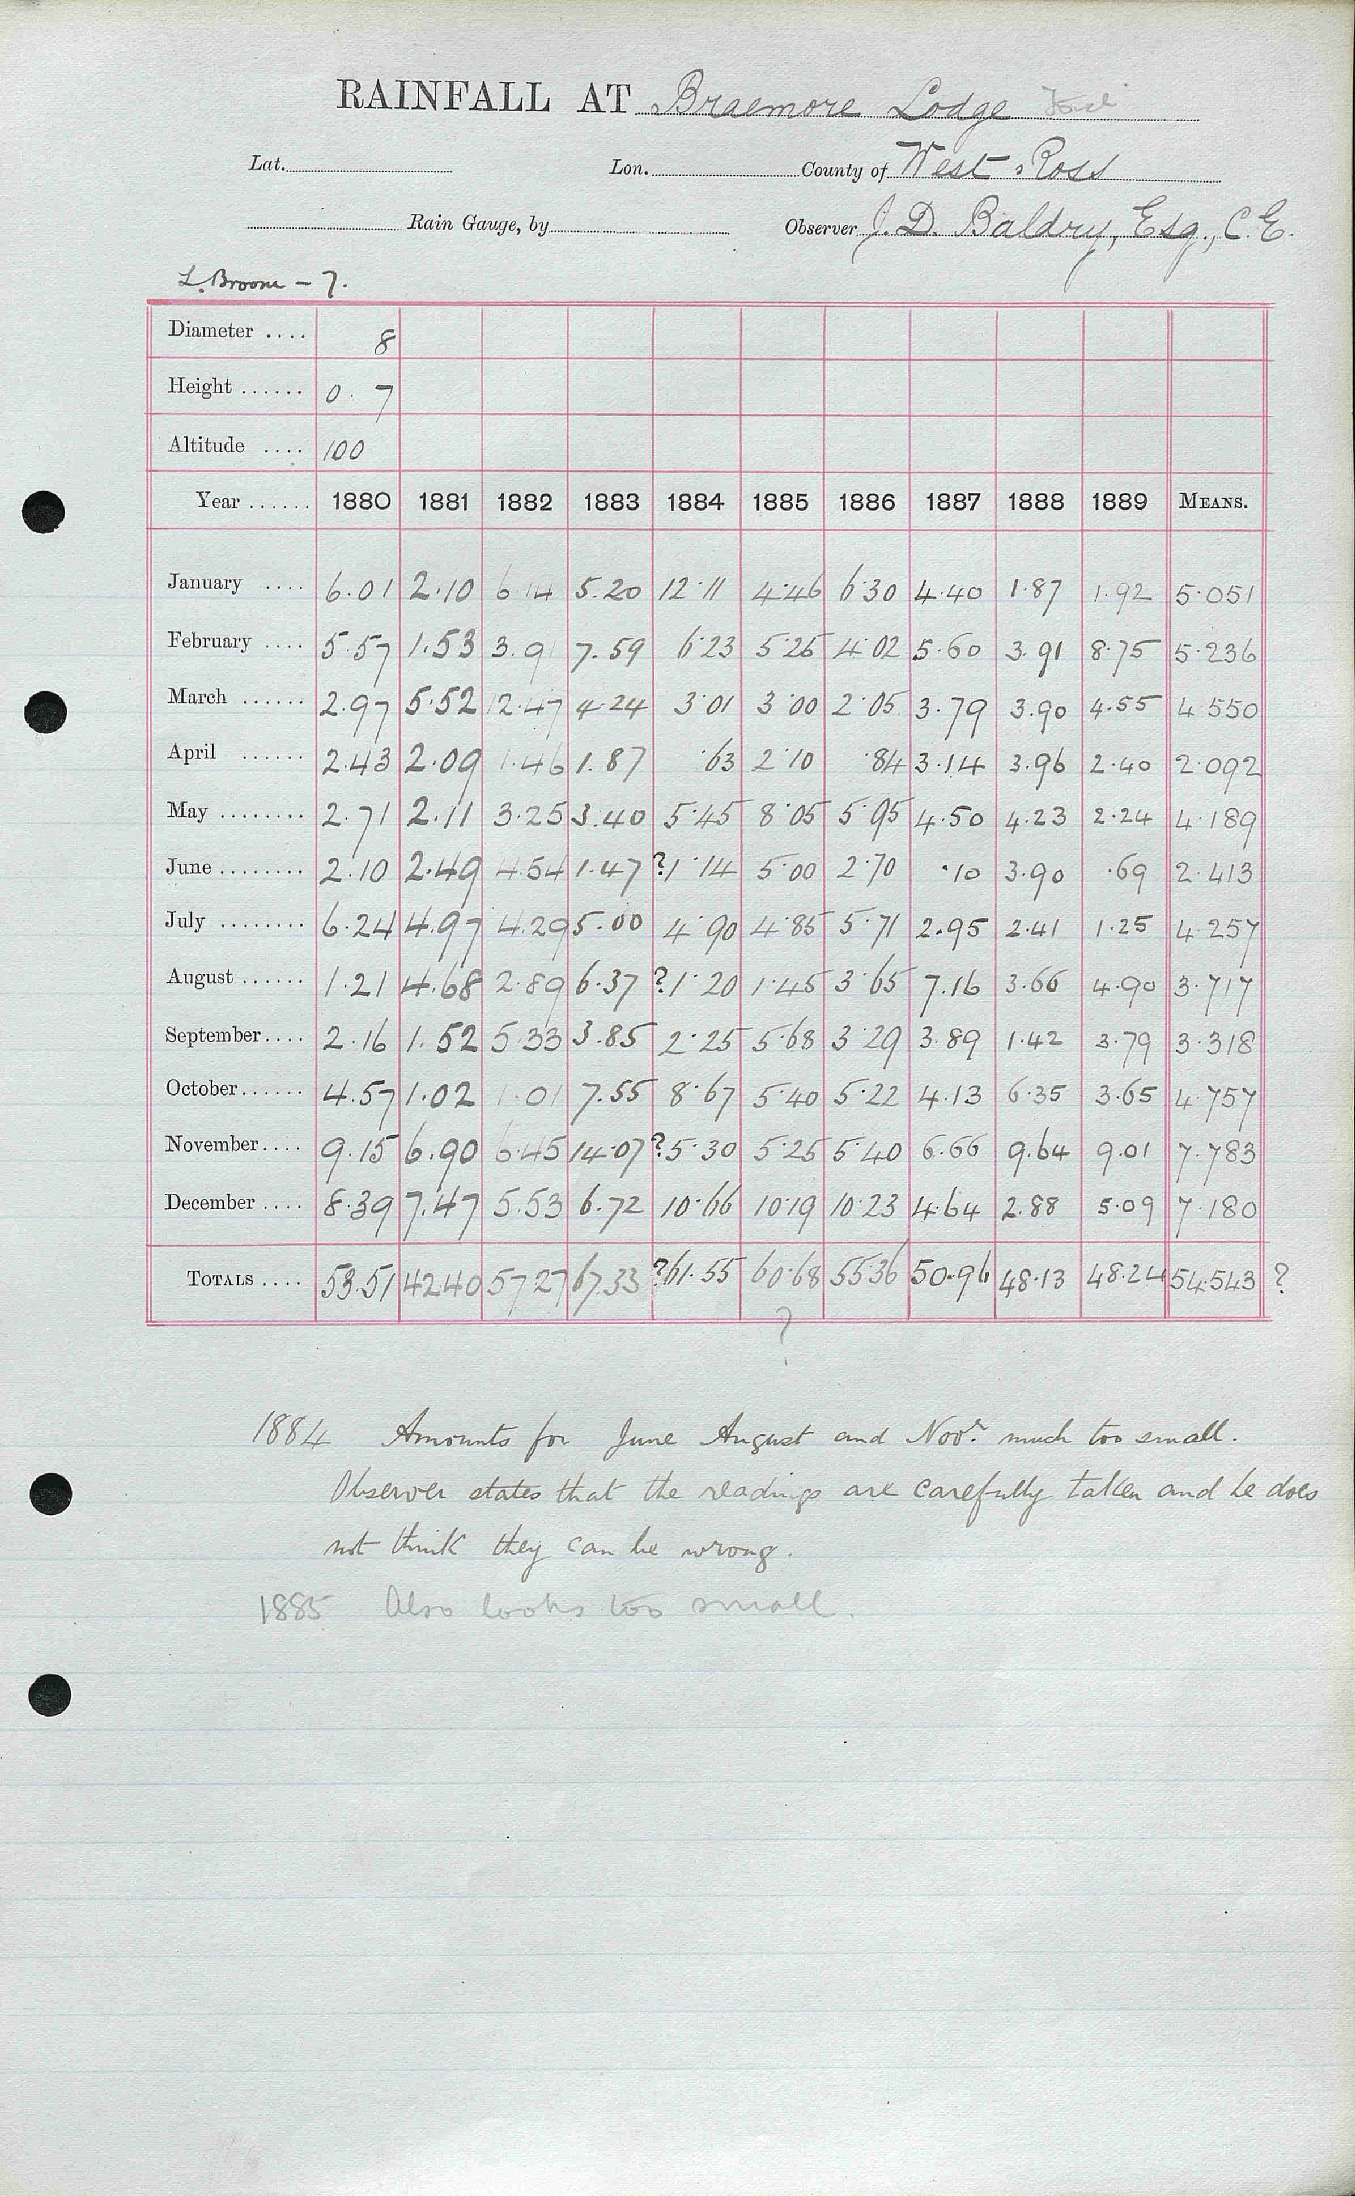 RAINFALL AT Braemore Lodge
Lat. Lon. County of West Ross
Rain Gauge, by Observer J. D. Baldry, Esq., C.E.
L. Broom - 7.
Diameter .... 8
Height ...... 0. 7
Altitude .... 100
Year ...... 1880 1881 1882 1883 1884 1885 1886 1887 1888 1889 MEANS.
January .... 6.01 2.10 6.14 5.20 12.11 4.46 6.30 4.40 1.87 1.92 5.051
February .... 5.57 1.53 3.91 7.59 6.23 5.25 4.02 5.60 3.91 8.75 5.236
March ...... 2.97 5.52 12.47 4.24 3.01 3.00 2.05 3.79 3.90 4.55 4.550
April ...... 2.43 2.09 1.46 1.87 .63 2.10 .84 3.14 3.96 2.40 2.092
May ........ 2.71 2.11 3.25 3.40 5.45 8.05 5.95 4.50 4.23 2.24 4.189
June ........ 2.10 2.49 4.54 1.47 ?1.14 5.00 2.70 .10 3.90 .69 2.413
July ........ 6.24 4.97 4.29 5.00 4.90 4.85 5.71 2.95 2.41 1.25 4.257
August ...... 1.21 4.68 2.89 6.37 ?1.20 1.45 3.65 7.16 3.66 4.90 3.717
September .... 2.16 1.52 5.33 3.85 2.25 5.68 3.29 3.89 1.42 3.79 3.318
October ...... 4.57 1.02 1.01 7.55 8.67 5.40 5.22 4.13 6.35 3.65 4.757
November .... 9.15 6.90 6.45 14.07 ?5.30 5.25 5.40 6.66 9.64 9.01 7.783
December .... 8.39 7.47 5.53 6.72 10.66 10.19 10.23 4.64 2.88 5.09 7.180
TOTALS .... 53.51 42.40 57.27 67.33 ?61.55 60.68 55.36 50.96 48.13 48.24 54.543 ?
?
1884 Amounts for June August and Novr. much too small.
Observer states that the readings are carefully taken and he does
not think they can be wrong.
1885 Also looks too small.